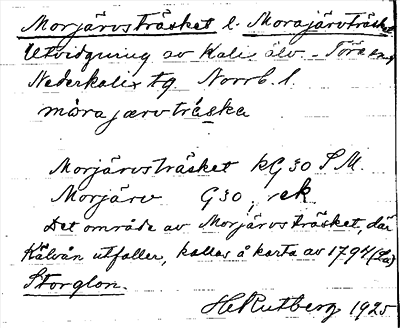 Morjärvsträsket l. Morajärvträsket
Utvidgning av Kalix älv. Töre sn,
Nederkalix tg Norrb. l.
mårajærvträska
Morjärvsträsket KG 30 S M.
Morjärv G30, rek
Det område av Morjärvsträsket, där
Kälvån utfaller, kallas å karta av 1794
Storglon.
HeRutberg 1925